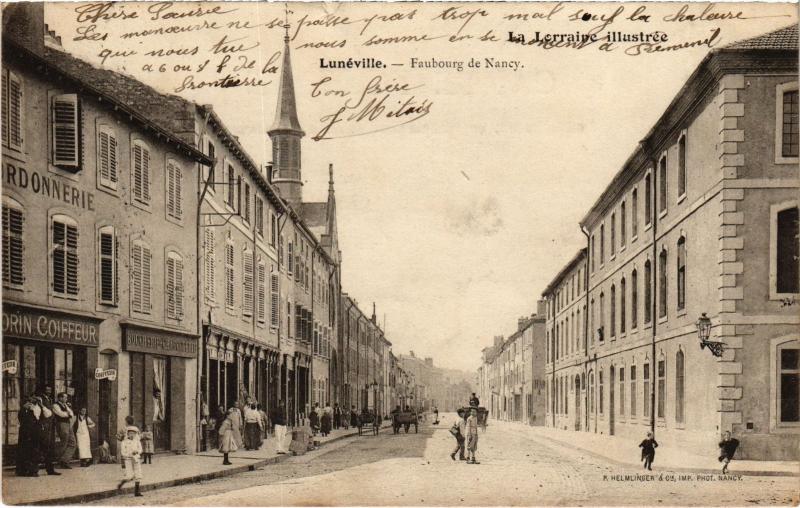 Chère Laurie
Les manœuvre ne se passe pas trop mal sauf la chaleure
que nous tue nous somme en se moment a Remenil
a 6 ou 8 f de la
frontierre
Ton frère
J Mitais
La Lorraine illustrée
Lunéville. — Faubourg de Nancy.
ORDONNERIE
ORIN COIFFEUR
P. HELMLINGER & Cie, IMP. PHOT. NANCY.